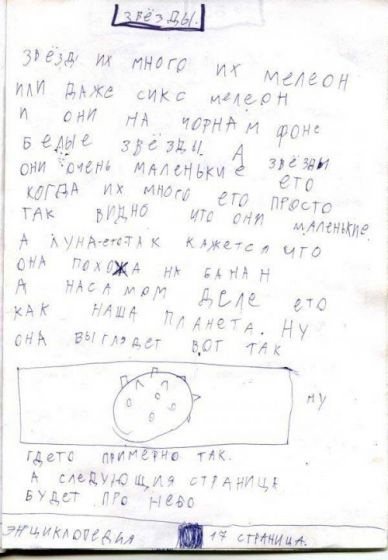 ЗВЁЗДЫ.
ЗВЁЗД ИХ МНОГО ИХ МЕЛЕОН
ИЛИ ДАЖЕ СИКС МЕЛЕОН
И ОНИ НА ЧОРНАМ ФОНЕ
БЕЛЫЕ ЗВЁЗДЫ. А
ОНИ ОЧЕНЬ МАЛЕНЬКИЕ ЗВЁЗДЫ
КОГДА ИХ МНОГО ЕТО
ТАК ВИДНО ЕТО ПРОСТО
ЧТО ОНИ МАЛЕНЬКИЕ.
А ЛУНА-ЕТО ТАК КАЖЕТСЯ ЧТО
ОНА ПОХОЖА НА БАНАН
А НАСАМОМ ДЕЛЕ ЕТО
КАК НАША ПЛАНЕТА. НУ
ОНА ВЫГЛЯДЕТ ВОТ ТАК
НУ
ГДЕТО ПРИМЕРНО ТАК.
А СЛЕДУЮЩИЯ СТРАНИЦА
БУДЕТ ПРО НЕБО
ЭНЦИКЛОПЕДЬЯ 17 СТРАНИЦА.